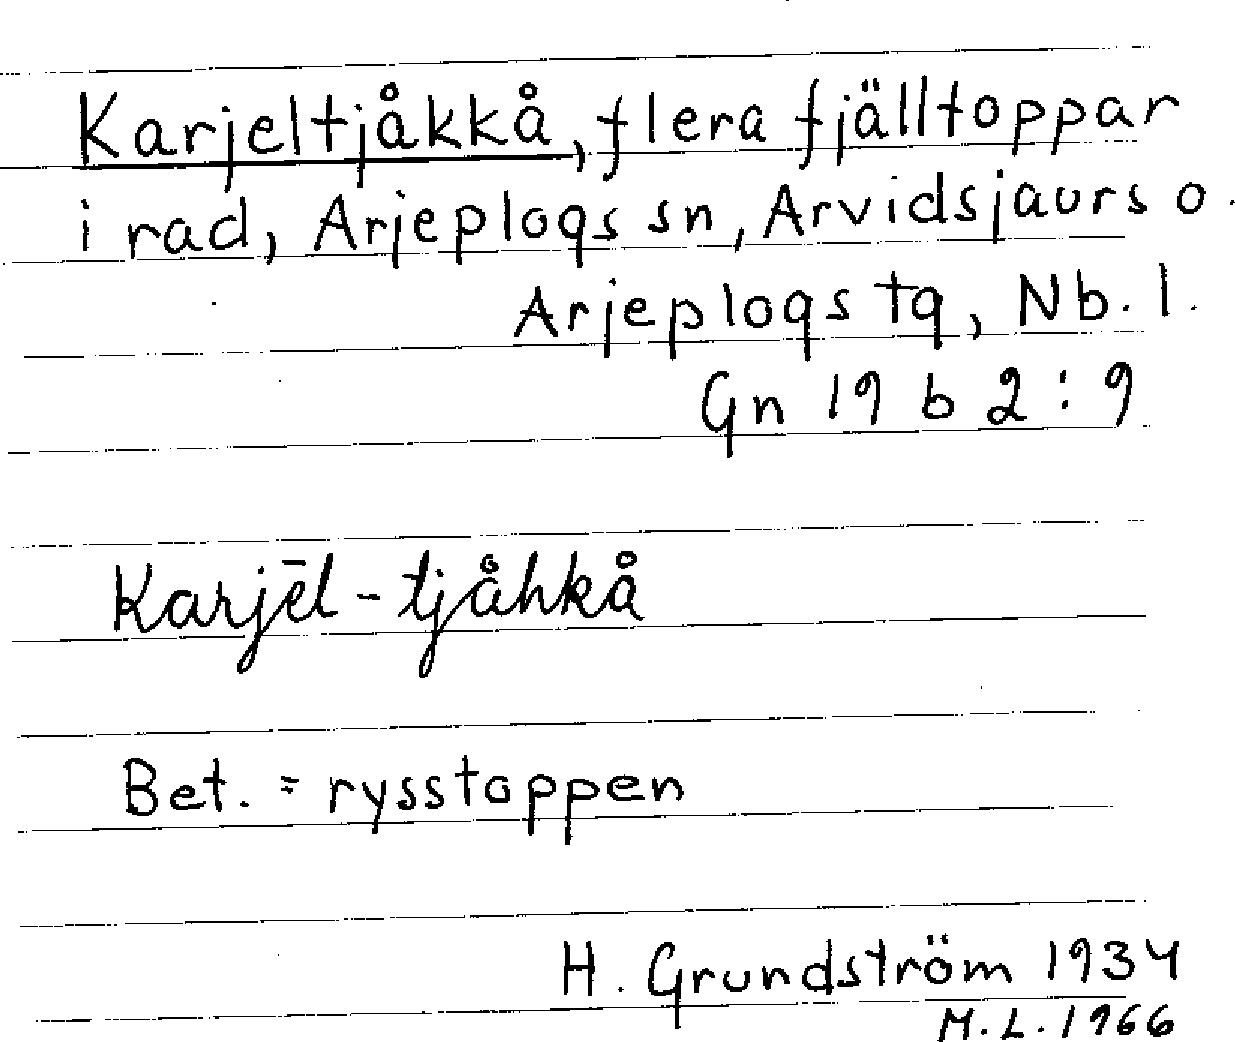 Karjeltjåkkå, flera fjälltoppar
i rad, Arjeplogs sn, Arvidsjaurs o.
Arjeplogs tg, Nb. l.
Gn 19 b 2:9
Karjēl-tjåhkå
Bet. = rysstoppen
H. Grundström 1934
M.L. 1966